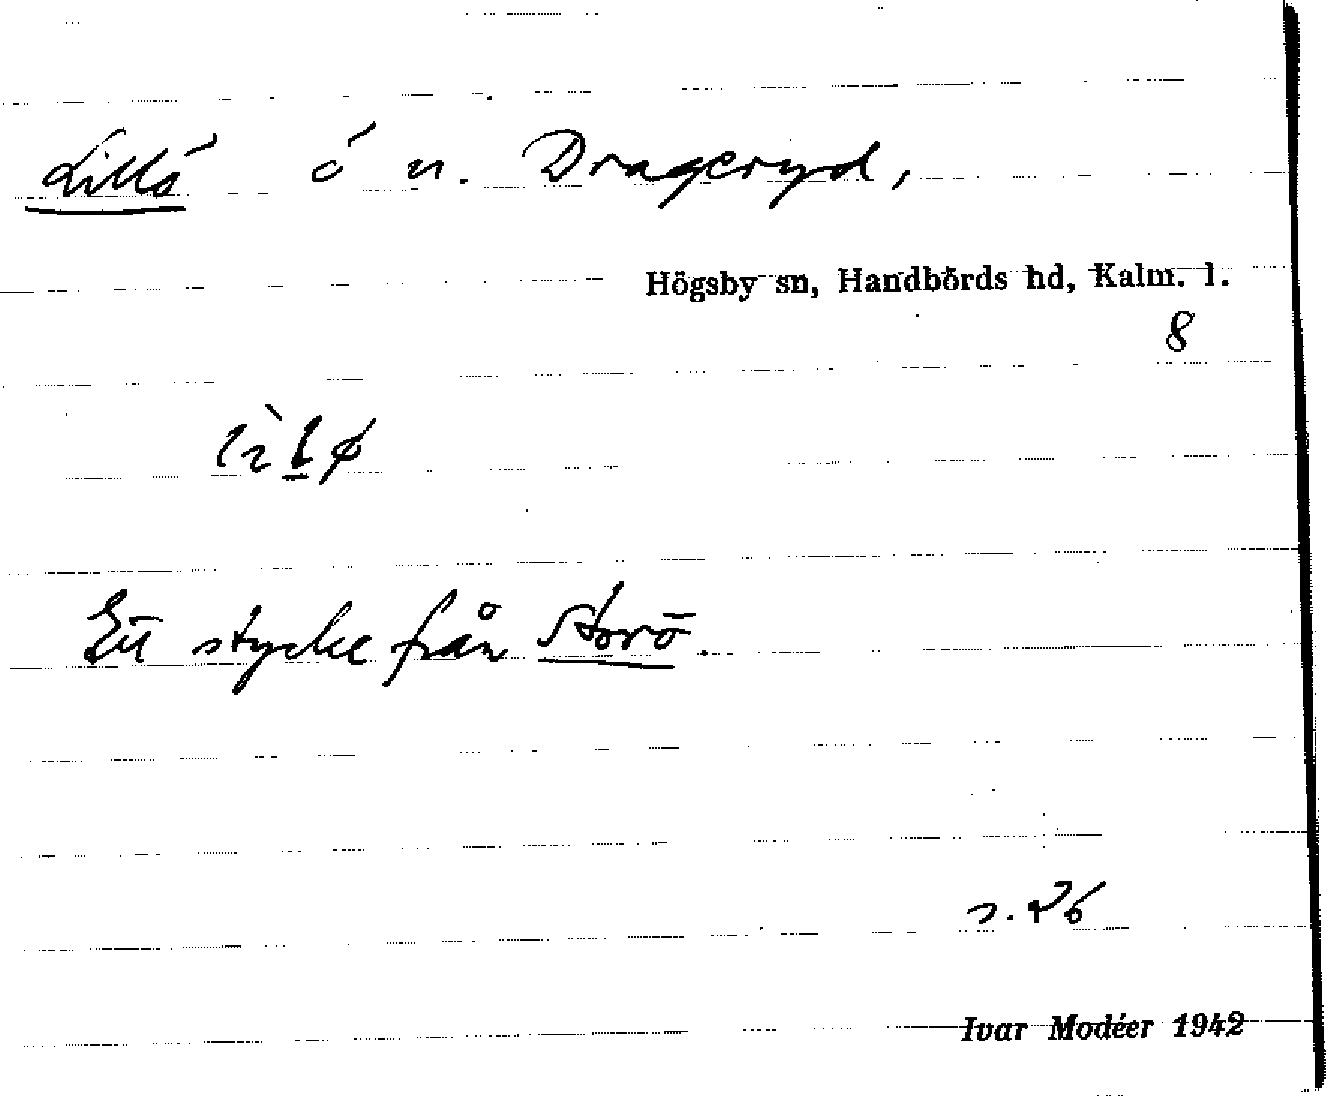 Lillö ö n. Drageryd,
Högsby sn, Handbörds hd, Kalm. l.
8
Ett stycke från Storö.
s. 26
Ivar Modéer 1942